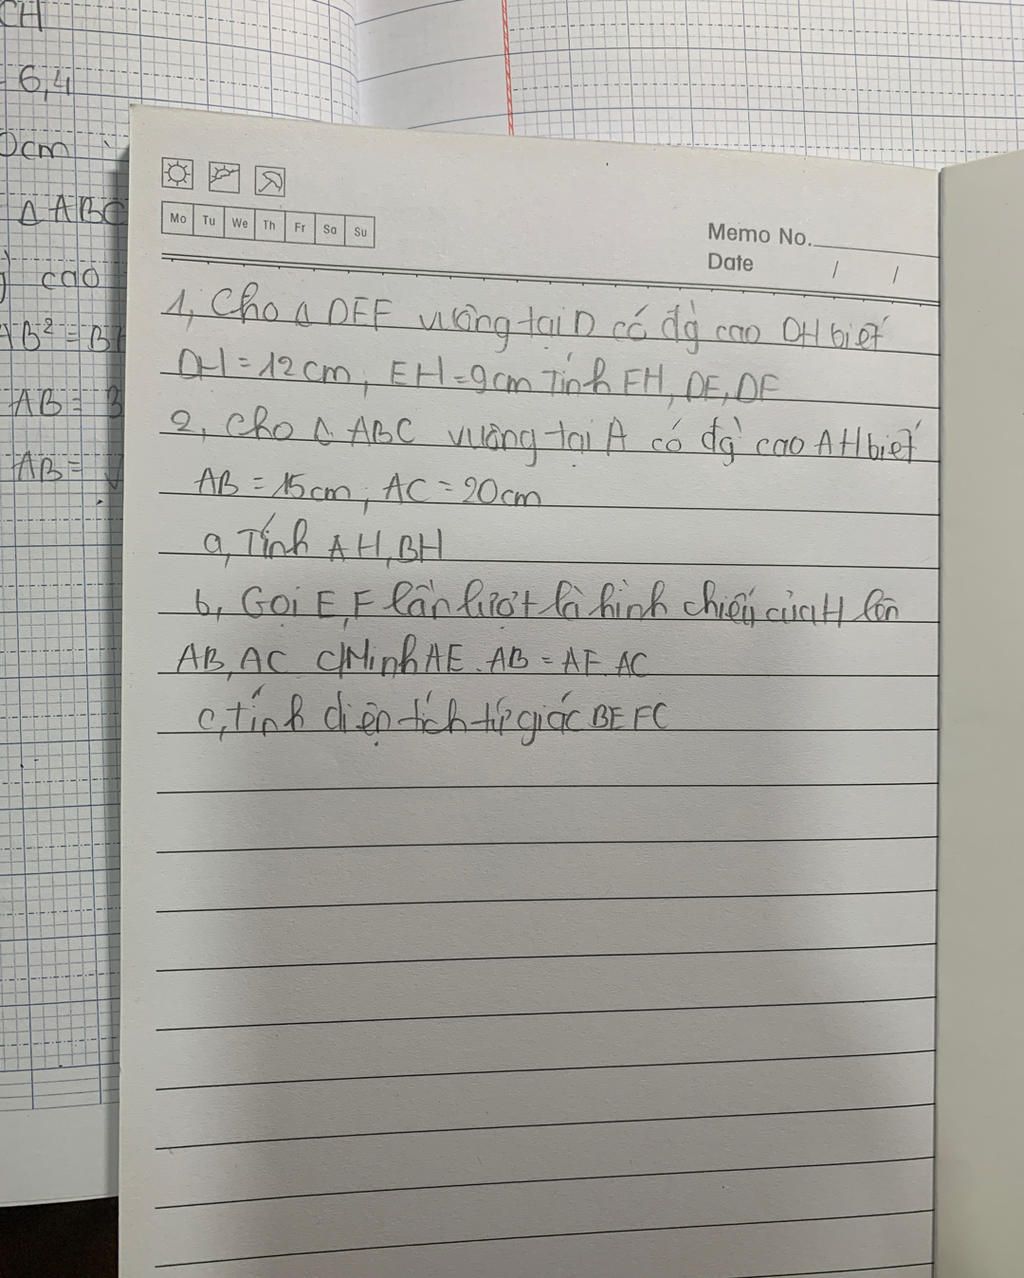 CH
6,4
0cm
Δ ABC
cao
AB² = BH
AB = 3
AB = √
Mo Tu We Th Fr Sa Su
Memo No.
Date / /
1, Cho Δ DEF vuông tại D có đg cao DH biết
DH = 12 cm, EH = 9cm Tính FH, DE, DF
2, Cho Δ ABC vuông tại A có đg cao AH biết
AB = 15cm, AC = 20cm
a, Tính AH, BH
b, Gọi E, F lần lượt là hình chiếu của H lên
AB, AC C/Minh AE . AB = AF . AC
c, tính diện tích tứ giác BEFC